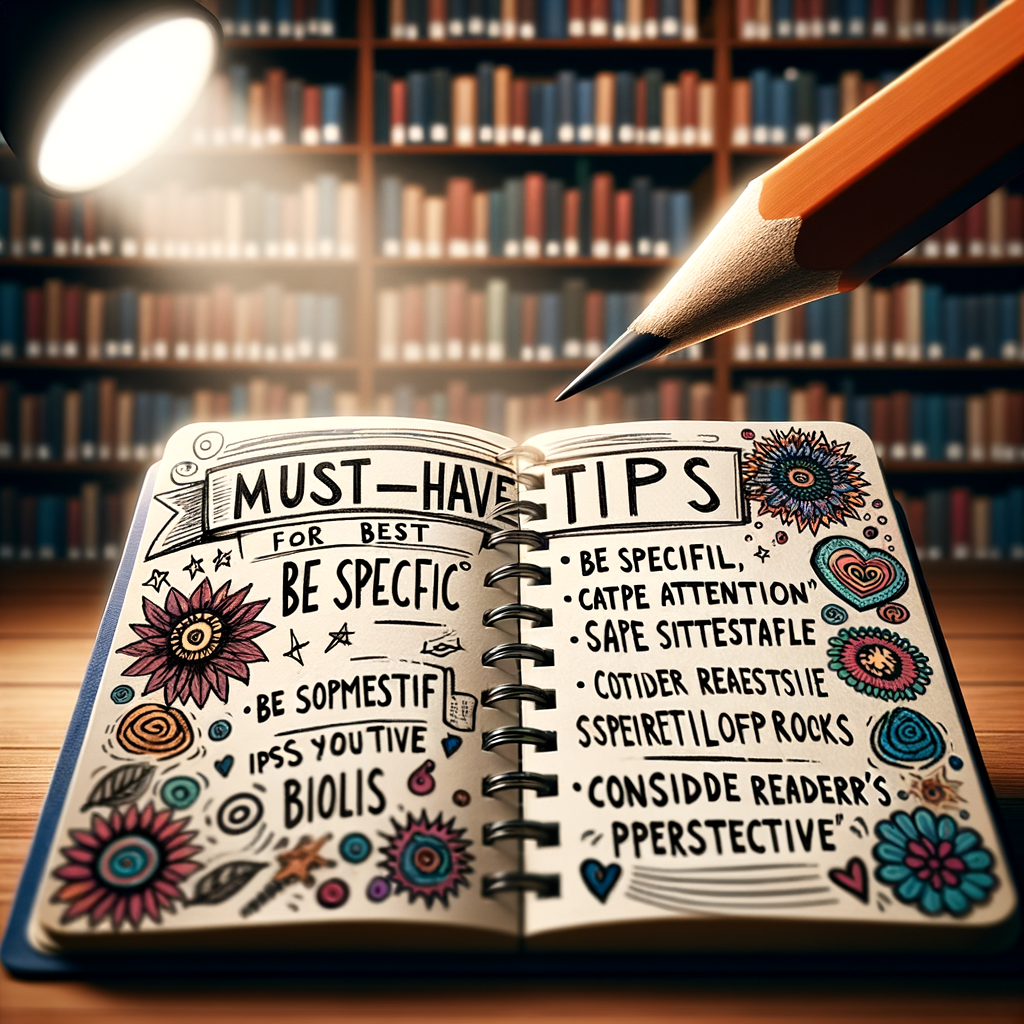 MUST-HAVE TIPS
FOR BEST
BE SPECFIC°
·BE SOPMESTIF
IPSS YOUTIVE
BIOLIS
• BE SPECIFIL,
• CATPE ATTENTION"
• SAPE SITTESTAFLE
• COTIDER REAESTSIIE
SSPEIRETILOFP ROCKS
• CONSIDDE READERR'S
PPERSTECTIVE"